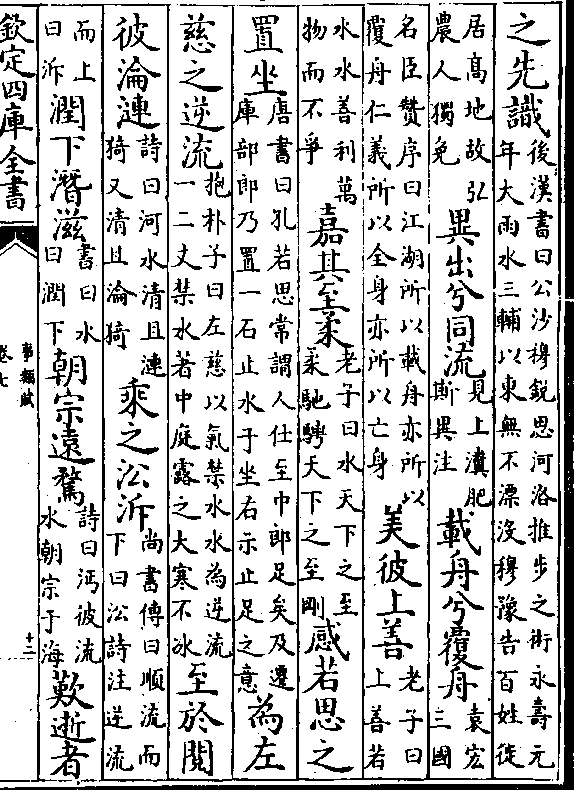 之先識後漢書曰公沙穆銳思河洛推步之術永壽元年大雨水三輔以東無不漂沒穆豫告百姓徙
居高地故弘農人獨免異出兮同流見上瀵肥斯異注載舟兮覆舟袁宏三國
名臣贊序曰江湖所以載舟亦所以覆舟仁義所以全身亦所以亡身美彼上善老子曰上善若
水水善利萬物而不爭嘉其至柔老子曰水天下之至柔馳騁天下之至剛感若思之
置坐唐書曰孔若思常謂人仕至中郎足矣及遷庫部郎乃置一石止水于坐右示止足之意為左
慈之逆流抱朴子曰左慈以氣禁水水為逆流一二丈禁水著中庭露之大寒不冰至於閱
彼淪漣詩曰河水清且漣猗又清且淪猗乘之㳂泝尚書傳曰順流而下曰㳂詩注逆流
而上曰泝潤下潛滋書曰水曰潤下朝宗遠騖詩曰沔彼流水朝宗于海歎逝者
欽定四庫全書
事類賦
卷七
十二